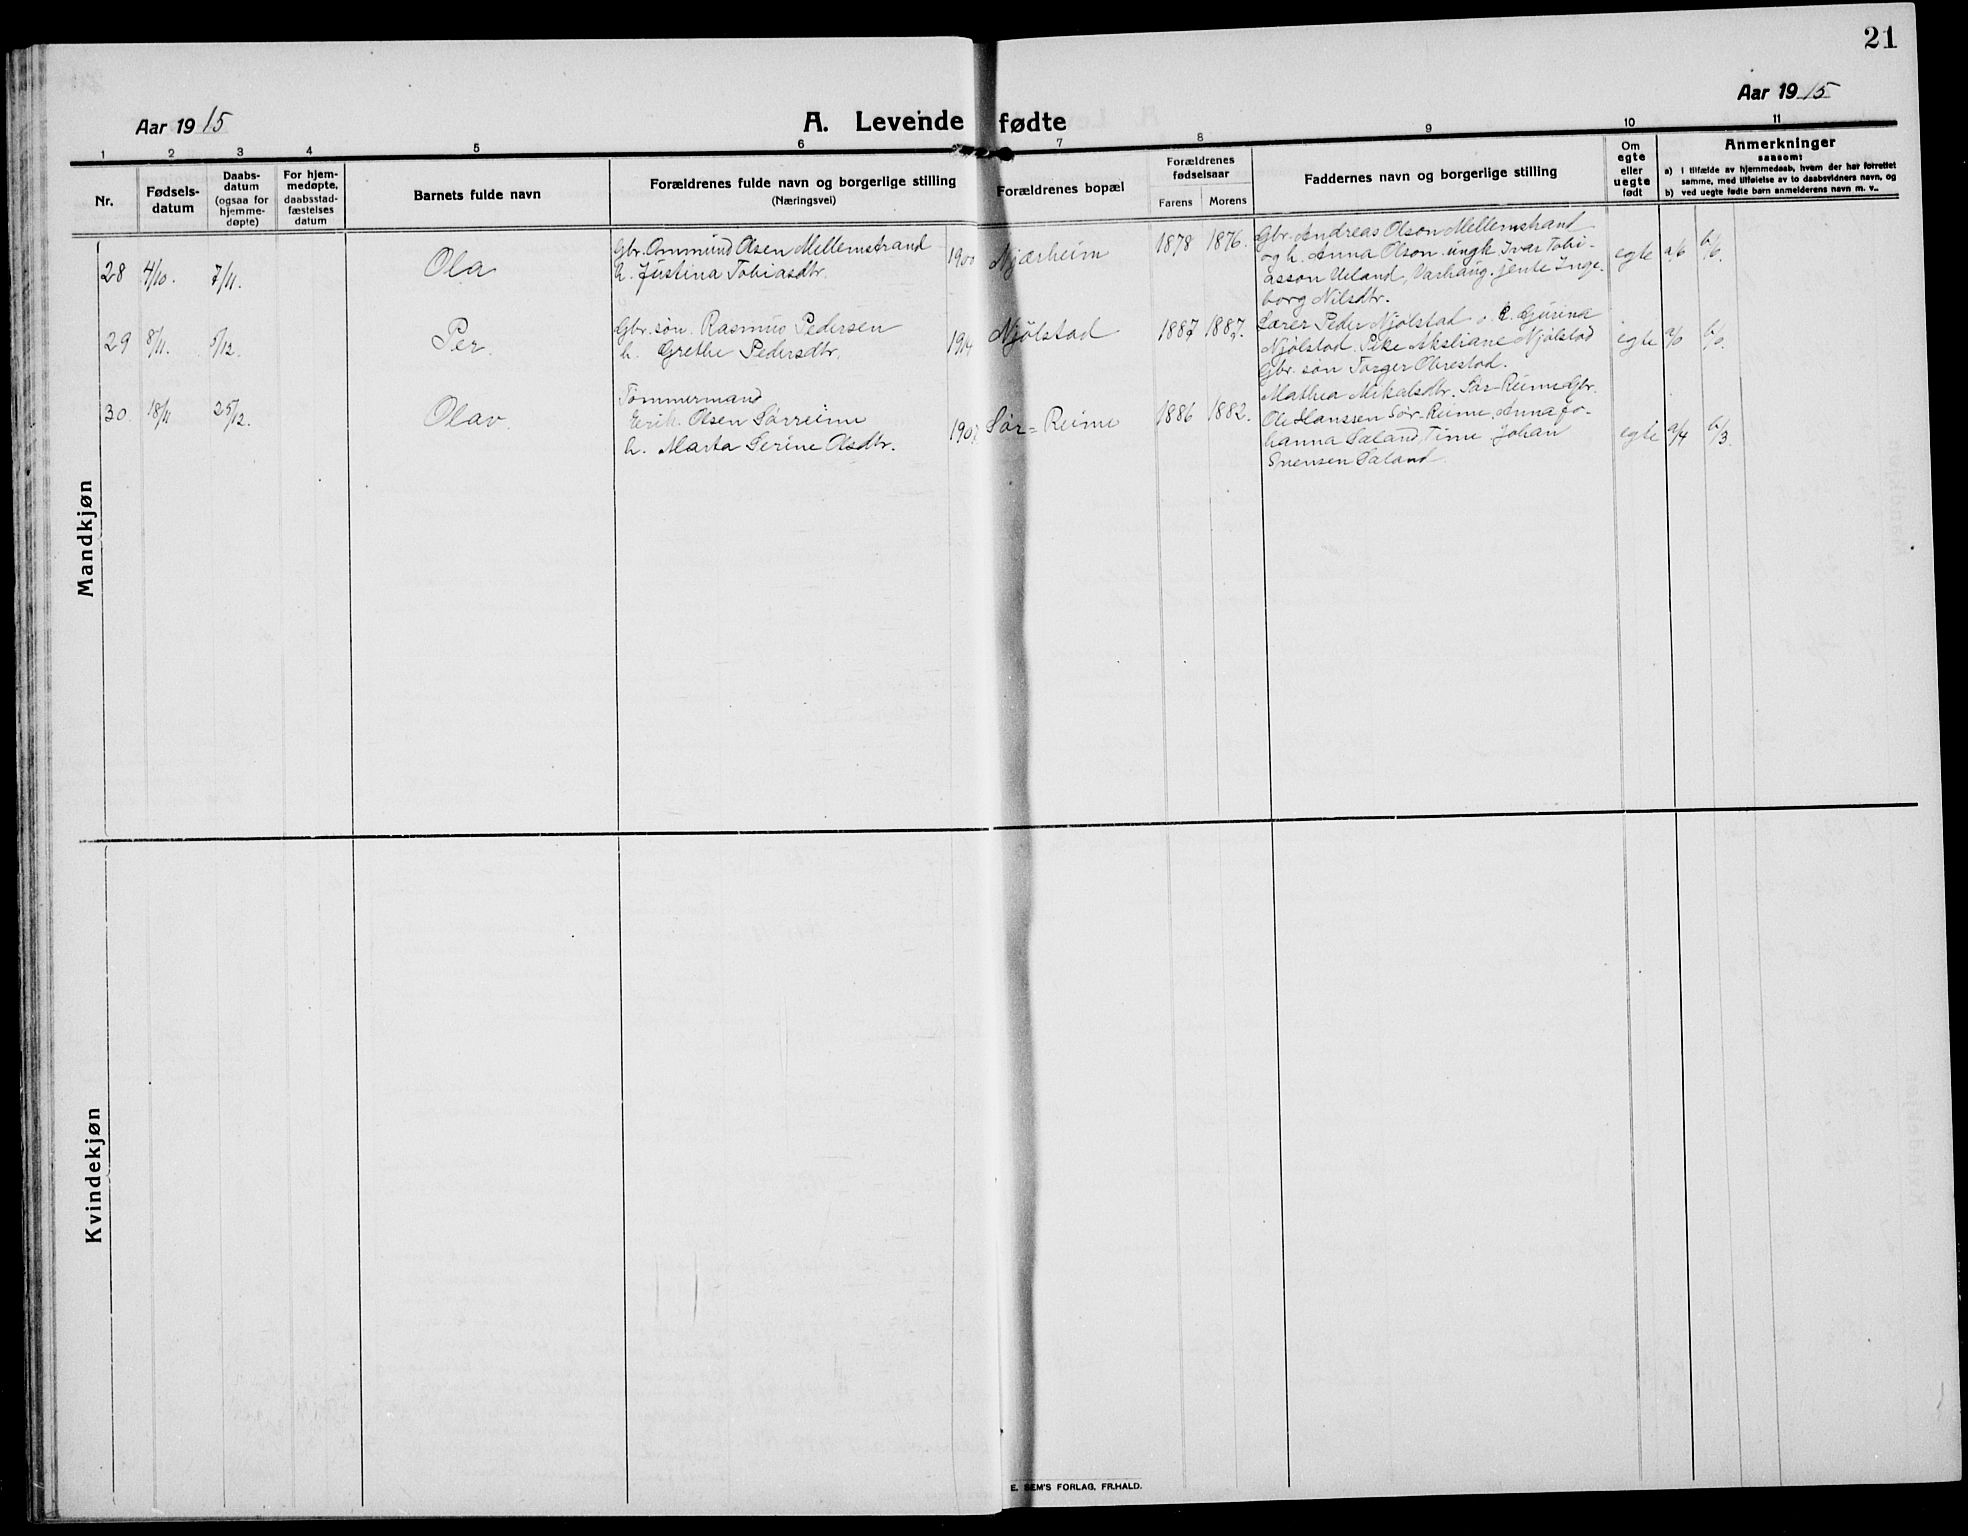 21
Aar 1915
A. Levende fødte
Aar 1915
1 2 3 4 5 6 7 8 9 10 11
Nr.
Fødsels-
datum
Daabs-
datum
(ogsaa for
hjemme-
døpte)
For hjem-
medøpte,
daabsstad-
fæstelses
datum
Barnets fulde navn
Forældrenes fulde navn og borgerlige stilling
(Næringsvei)
Forældrenes bopæl
Forældrenes
fødselsaar
Farens Morens
Faddernes navn og borgerlige stilling
Om
egte
eller
uegte
født
Anmerkninger
saasom:
a) i tilfælde av hjemmedaab, hvem der har forrettet
samme, med tilføielse av to daabsvidners navn, og
b) ved uegte fødte barn anmelderens navn m. v.
Mandkjøn
28 4/10. 7/11. Ola
Gbr. Ommund Olsen Mellemstrand
h. Justina Tobiasdtr.
1900 Njærheim 1878 1876.
Gbr. Andreas Olson Mellemstrand
og h. Anna Olson. ungk. Ivar Tobi-
asson Ueland, Varhaug. jente Inge-
borg Nilsdtr.
egte a/6 b/0.
29 8/11. 5/12. Per.
Gbr. søn. Rasmus Pedersen
h. Grethe Pedersdtr.
1914 Njølstad 1887 1887.
Lærer Peder Njølstad o. Gurina
Njølstad. Pike Akshane Njølstad
Gbr. søn Torger Obrestad.
egte a/0 b/0.
30. 18/11 25/12. Olav.
Tømmermand
Erik Olsen Sørreime
h. Marta Serine Olsdtr.
1907 Sør-Reime 1886 1882.
Mathea Mikalsdtr. Sør-Reime Gbr.
Ole Hanssen Sør-Reime, Anna Jo-
hanna Saland, Time. Johan
Svensen Saland.
egte a/4 b/3.
Kvindekjøn
E. SEM'S FORLAG, FR.HALD.